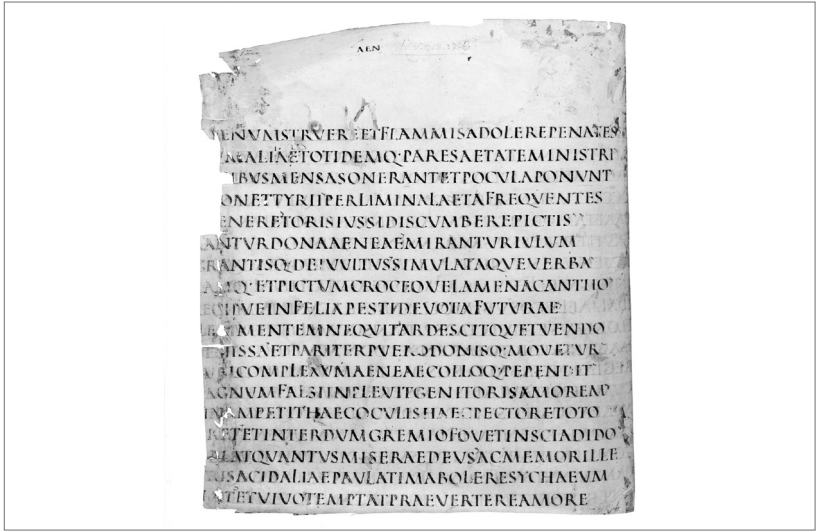 AEN
STRVEREETFLAMMISADOLEREPENATES
ALIAETOTIDEMQ·PARESAETATEMINISTRI
MENSASONERANTETPOCVLAPONVNT
ETTYRIIPERLIMINALAETAFREQVENTES
TORISIVSSIDISCVMBEREPICTIS
ANTVRDONAAENEAEMIRANTVRIVLVM
RANTISQ·DEIVVLTVSSIMVLATAQVEVERBA
ETPICTVMCROCEOVELAMENACANTHO
INFELIXPESTIDEVOTAFVTVRAE
MENTEMNEQVITARDESCITQVETVENDO
ISSAETPARITERPVERODONISQ·MOVETVR
COMPLEXVMAENEAECOLLOQ·PEPENDIT
AGNVMFALSIINPLEVITGENITORISAMOREM
PETITHAECOCVLISHAECPECTORETOTO
ETINTERDVMGREMIOFOVETINSCIADIDO
ATQVANTVSMISERAEDEVSACMEMORILLE
ACIDALIAEPAVLATIMABOLERESYCHAEVM
ETVIVOTEMPTATPRAEVERTEREAMORE